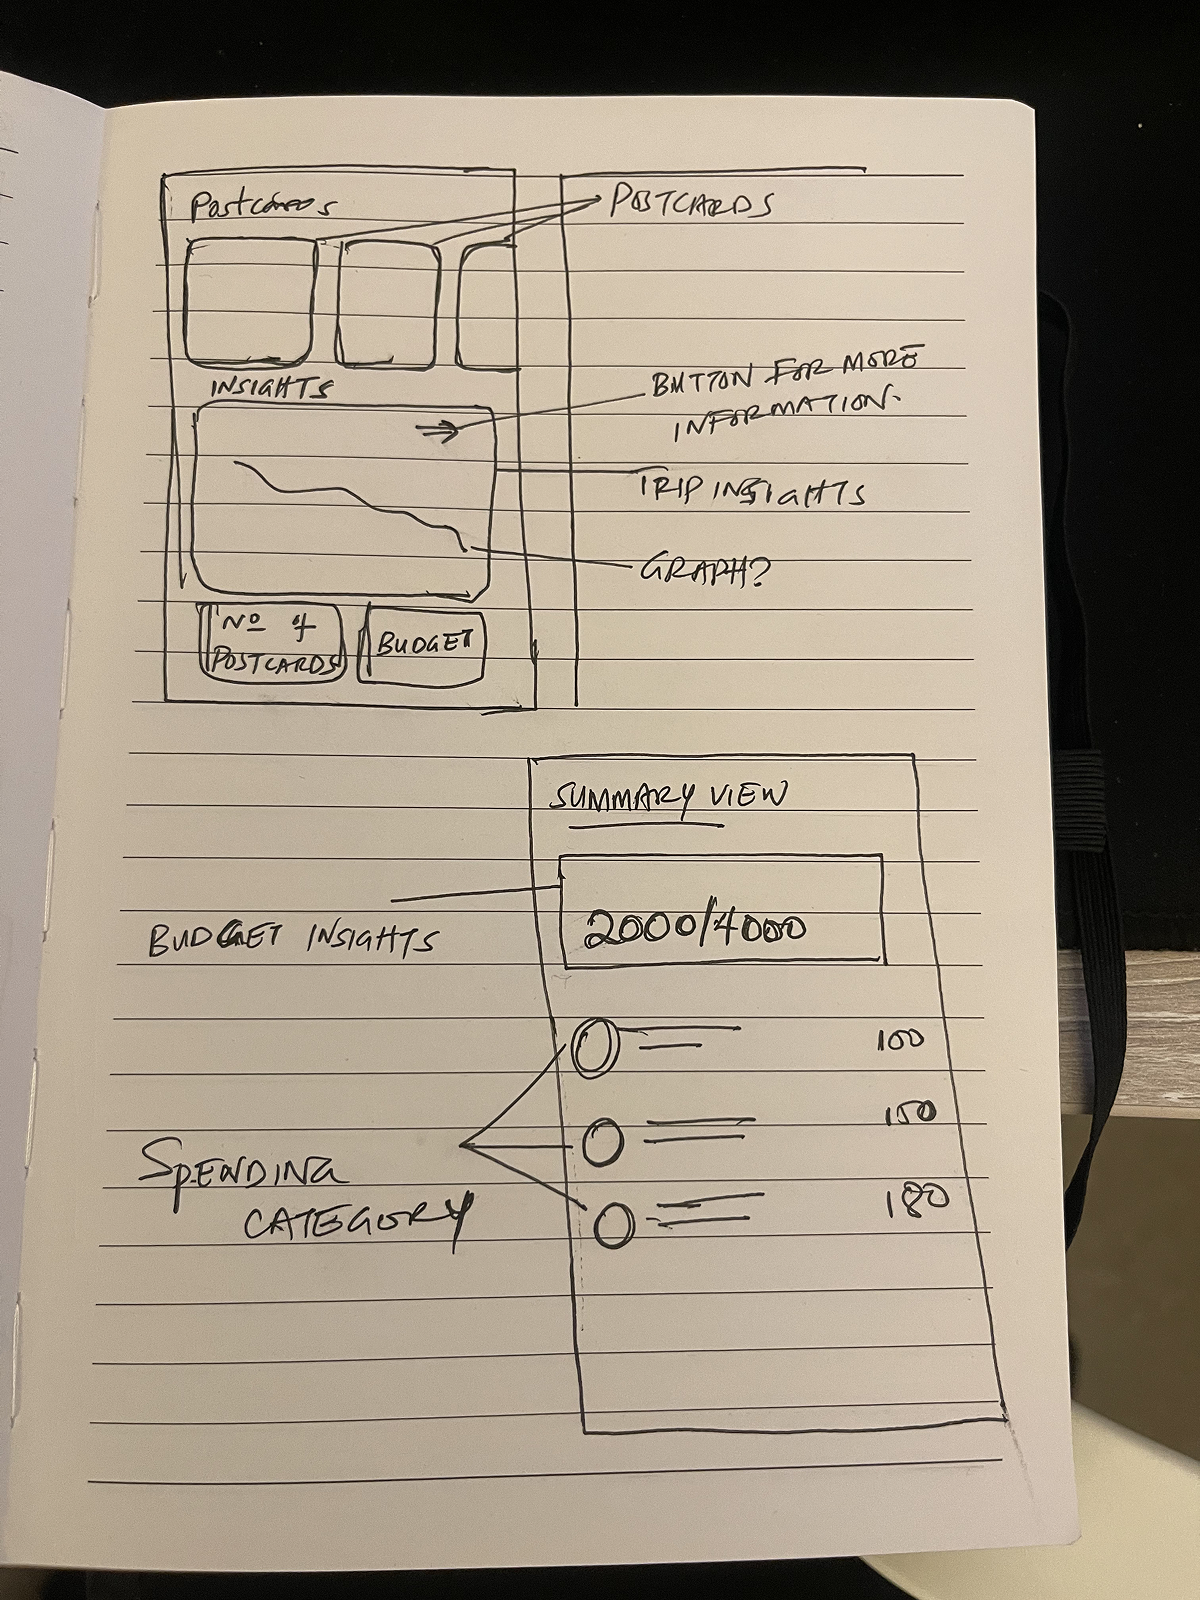 Postcards
POSTCARDS
INSIGHTS
BUTTON FOR MORE
INFORMATION.
TRIP INSIGHTS
GRAPH?
No of
POSTCARDS
BUDGET
SUMMARY VIEW
2000/4000
BUDGET INSIGHTS
100
150
180
SPENDING
CATEGORY